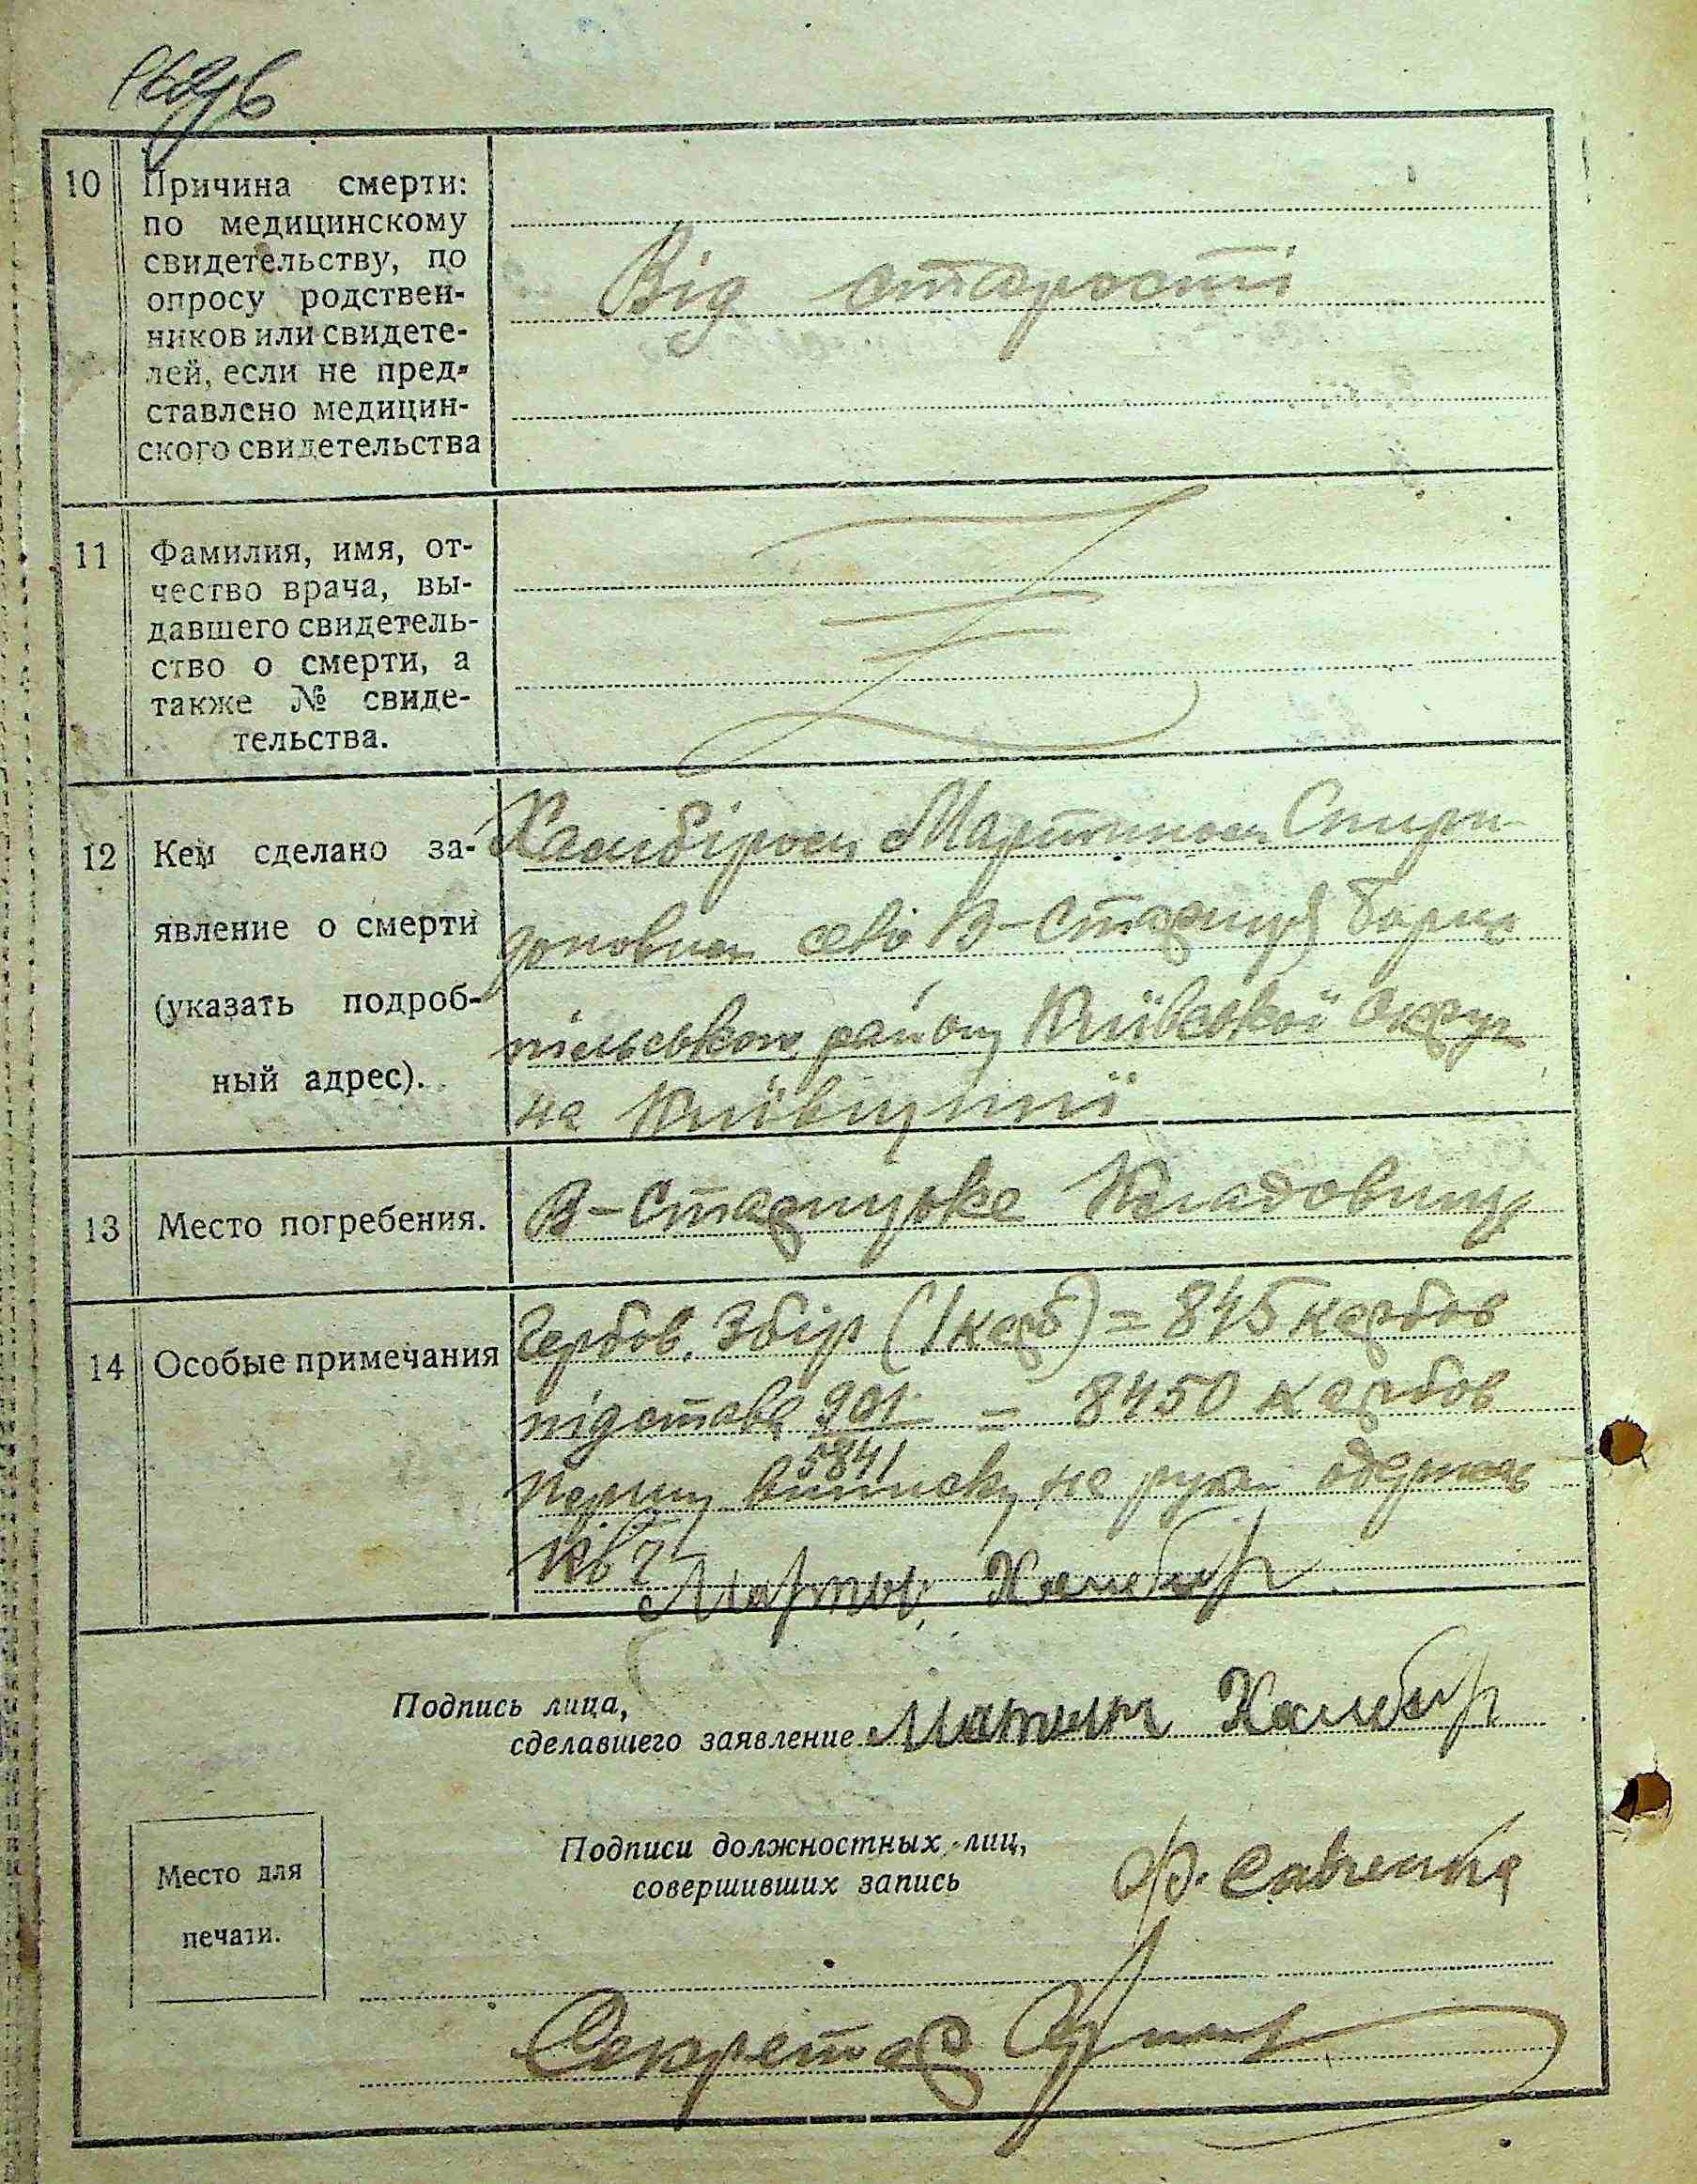 10 Причина смерти:
по медицинскому
свидетельству, по
опросу родствен-
ников или свидете-
лей, если не пред-
ставлено медицин-
ского свидетельства
Від старости
11 Фамилия, имя, от-
чество врача, вы-
давшего свидетель-
ство о смерти, а
также № свиде-
тельства.
12 Кем сделано за-
явление о смерти
(указать подроб-
ный адрес).
Хамбіром Мартином Спири-
доновичем село В-Стариця Борис
пільського району Київської округи
на Київщині
13 Место погребения.
В-Старицьке Кладовище
14 Особые примечания
Гербов. Збір (1 карб) = 845 карбов
підстава 901 - 8450 карбов
5841
Першу виписку на руки одержав
Мартин Хамбир
Подпись лица,
сделавшего заявление Мартин Хамбир
Место для
печати.
Подписи должностных лиц,
совершивших запись
Ф. Савченко
Секретар